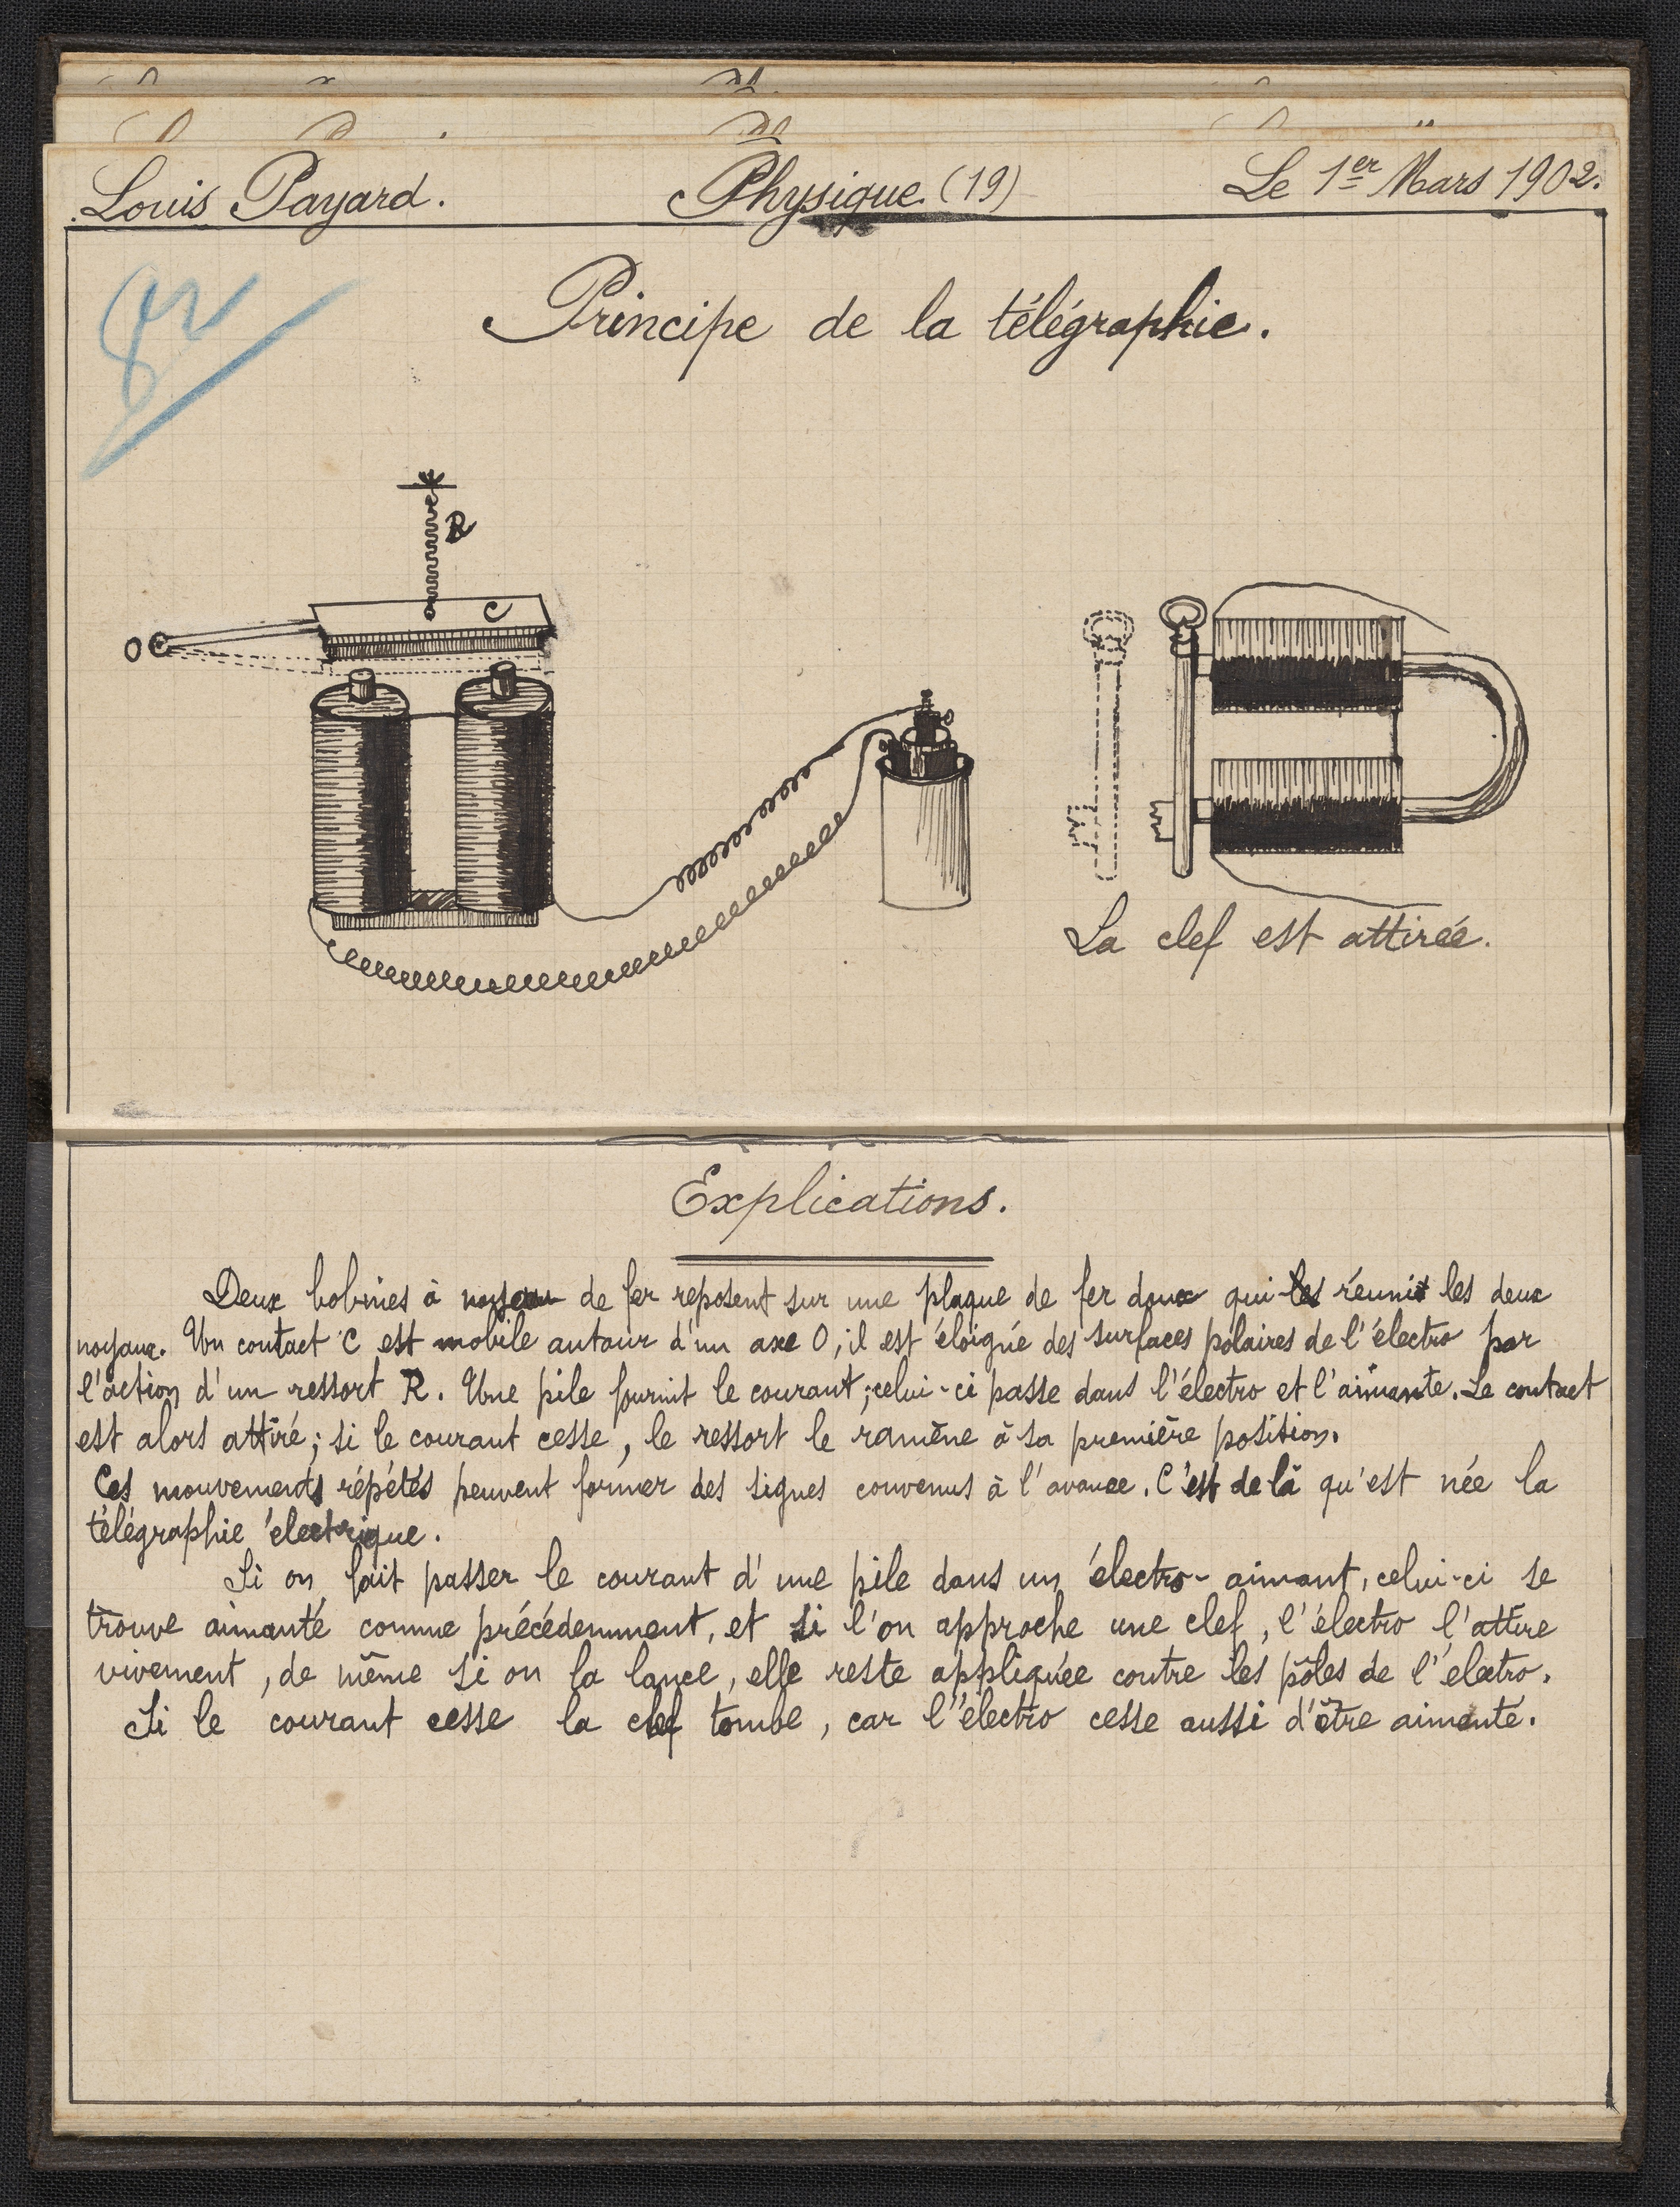 Louis Payard. Physique. (19) Le 1er Mars 1902.
Principe de la télégraphie.
R
C
O
La clef est attirée.
Explications.
Deux bobines à noyau de fer reposent sur une plaque de fer doux qui les réunit les deux
noyaux. Un contact C est mobile autour d'un axe O, il est éloigné des surfaces polaires de l'électro par
l'action d'un ressort R. Une pile fournit le courant; celui-ci passe dans l'électro et l'aimante. Le contact
est alors attiré; si le courant cesse, le ressort le ramène à sa première position.
Ces mouvements répétés peuvent former des signes convenus à l'avance. C'est de là qu'est née la
télégraphie électrique.
Si on fait passer le courant d'une pile dans un électro-aimant, celui-ci se
trouve aimanté comme précédemment, et si l'on approche une clef, l'électro l'attire
vivement, de même si on la lance, elle reste appliquée contre les pôles de l'électro.
Si le courant cesse la clef tombe, car l'électro cesse aussi d'être aimanté.